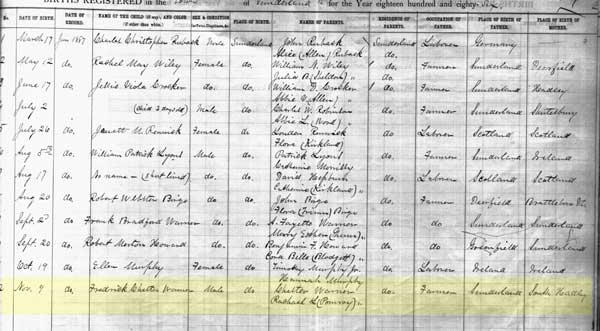 BIRTHS REGISTERED in the Town of Sunderland for the Year eighteen hundred and eighty-
No. DATE OF BIRTH. DATE OF RECORD. NAME OF THE CHILD (if any), AND COLOR (if other than white). SEX & CONDITION PLACE OF BIRTH. NAMES OF PARENTS. RESIDENCE OF PARENTS. OCCUPATION OF FATHER. PLACE OF BIRTH OF FATHER. PLACE OF BIRTH OF MOTHER.
March 17 Jan 1887 Charles Christopher Ruback Male Sunderland John Ruback Sunderland Laborer Germany
Alice (Allen) Ruback do.
May 12 do. Rachel May Wiley Female do. William N. Wiley do. Farmer Sunderland Deerfield
Julia A. (Sheldon) "
June 17 do. Jessie Viola Crocker do. do. William D. Crocker do. Farmer Sunderland Hadley
Abbie V. (Allen) "
4 July 2 (died 2 days old) Male do. Charles W. Robinson do. Farmer Sunderland Shutesbury
Abbie L. (Wood) "
5 July 26 do. Janett U. Rennick Female do London Rennick do Laborer Scotland Scotland
Flora (Kirkland)
6 Aug 5th do. William Patrick Lyons Male do. Patrick Lyons do. Farmer Sunderland Ireland
Catharine
Aug 17 do. No name – do. do. David Hepburn do. Laborer Scotland Scotland
Catharine (Kirkland) "
Aug 20 do. Robert Webster Bigo do. do. John Bigo do. Farmer Deerfield Brattleboro Vt.
Flora Bigo
9 Sept. 2 do. Frank Bradford Warner do. do. A. Fayette Warner do do Sunderland Sunderland
Mary Esther
Sept. 20 do. Robert Morton Howard do. do. Benjamin F. Howard do do Greenfield Sunderland
Cora Belle (Blodgett) "
Oct. 19 do. Ellen Murphy Female do Timothy Murphy Jr. do Laborer Ireland Ireland
Hannah Murphy
2 Nov. 9 do. Fredrick Chester Warner Male do. Chester Warner do. Farmer Sunderland South Hadley
Rachael L. (Pomroy) "